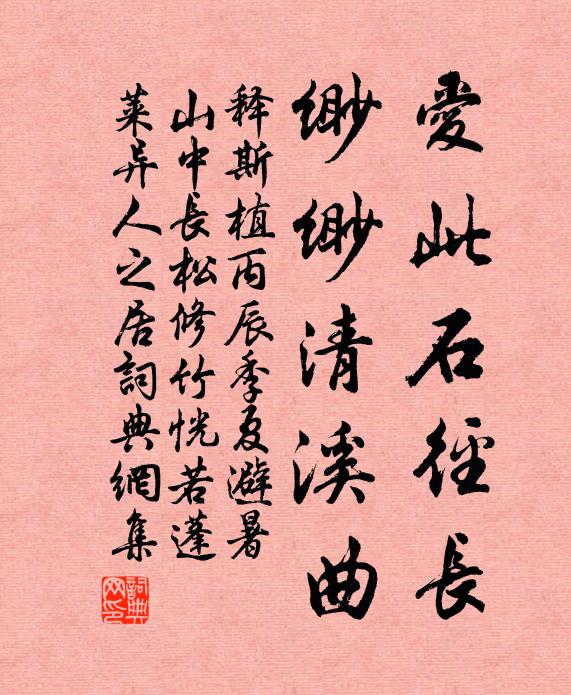 愛此石徑長
緲緲清溪曲
释斯植丙辰季夏避暑
山中長松修竹恍若蓬
莱异人之居詞典網集
詞典网印